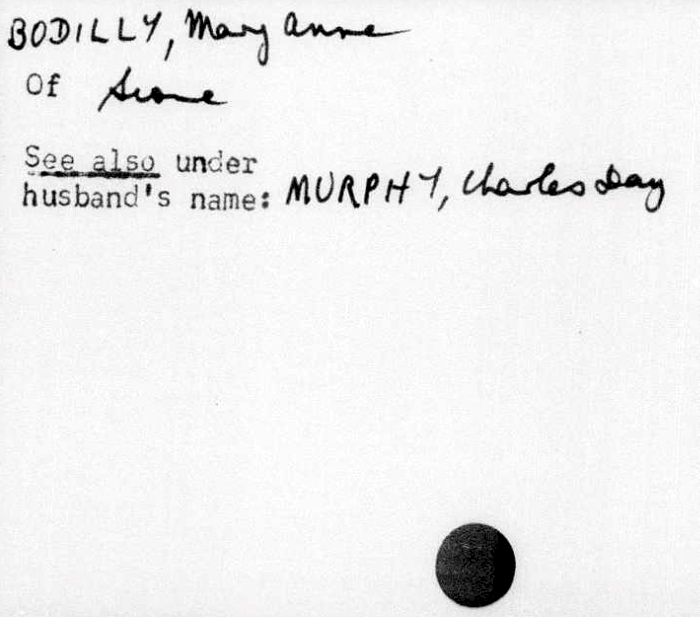 BODILLY, Mary Anne
Of
See also under
husband's name: MURPHY, Charles Day